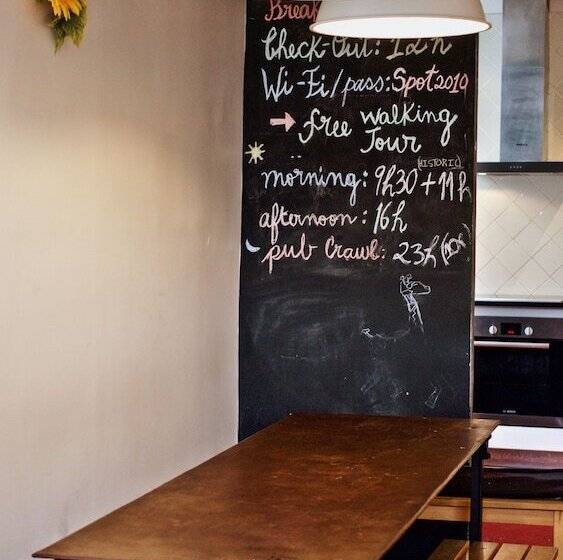 Check-Out: 12h
Wi-Fi/pass: Spot2019
→ free walking
Tour
(HISTORIC)
morning: 9h30 + 11h
afternoon: 16h
pub Crawl: 23h